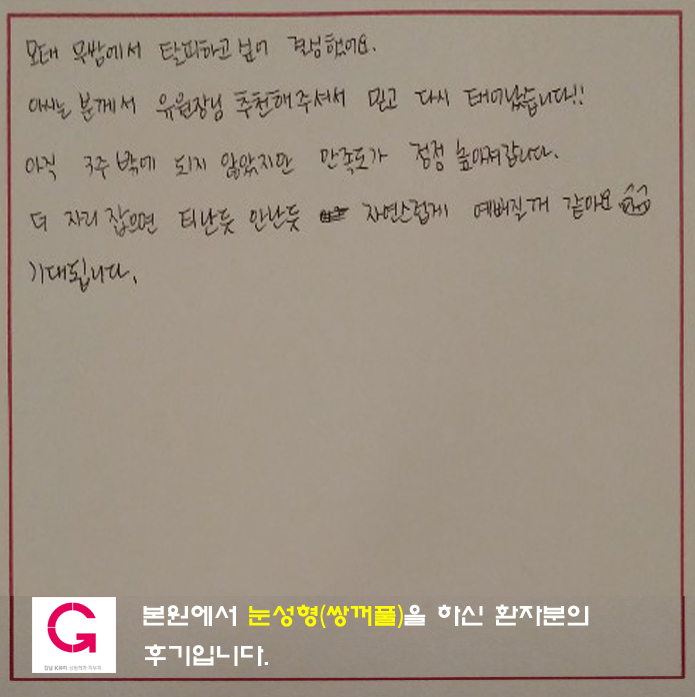 모태 무쌍에서 탈피하고 싶어 결심했어요.
아시는 분께서 유원장님 추천해주셔서 믿고 다시 태어났습니다!!
아직 3주 밖에 되지 않았지만 만족도가 점점 높아져갑니다.
더 자리 잡으면 티난듯 안난듯 자연스럽게 예뻐질거 같아요
기대됩니다.
본원에서 눈성형(쌍꺼풀)을 하신 환자분의
후기입니다.
G